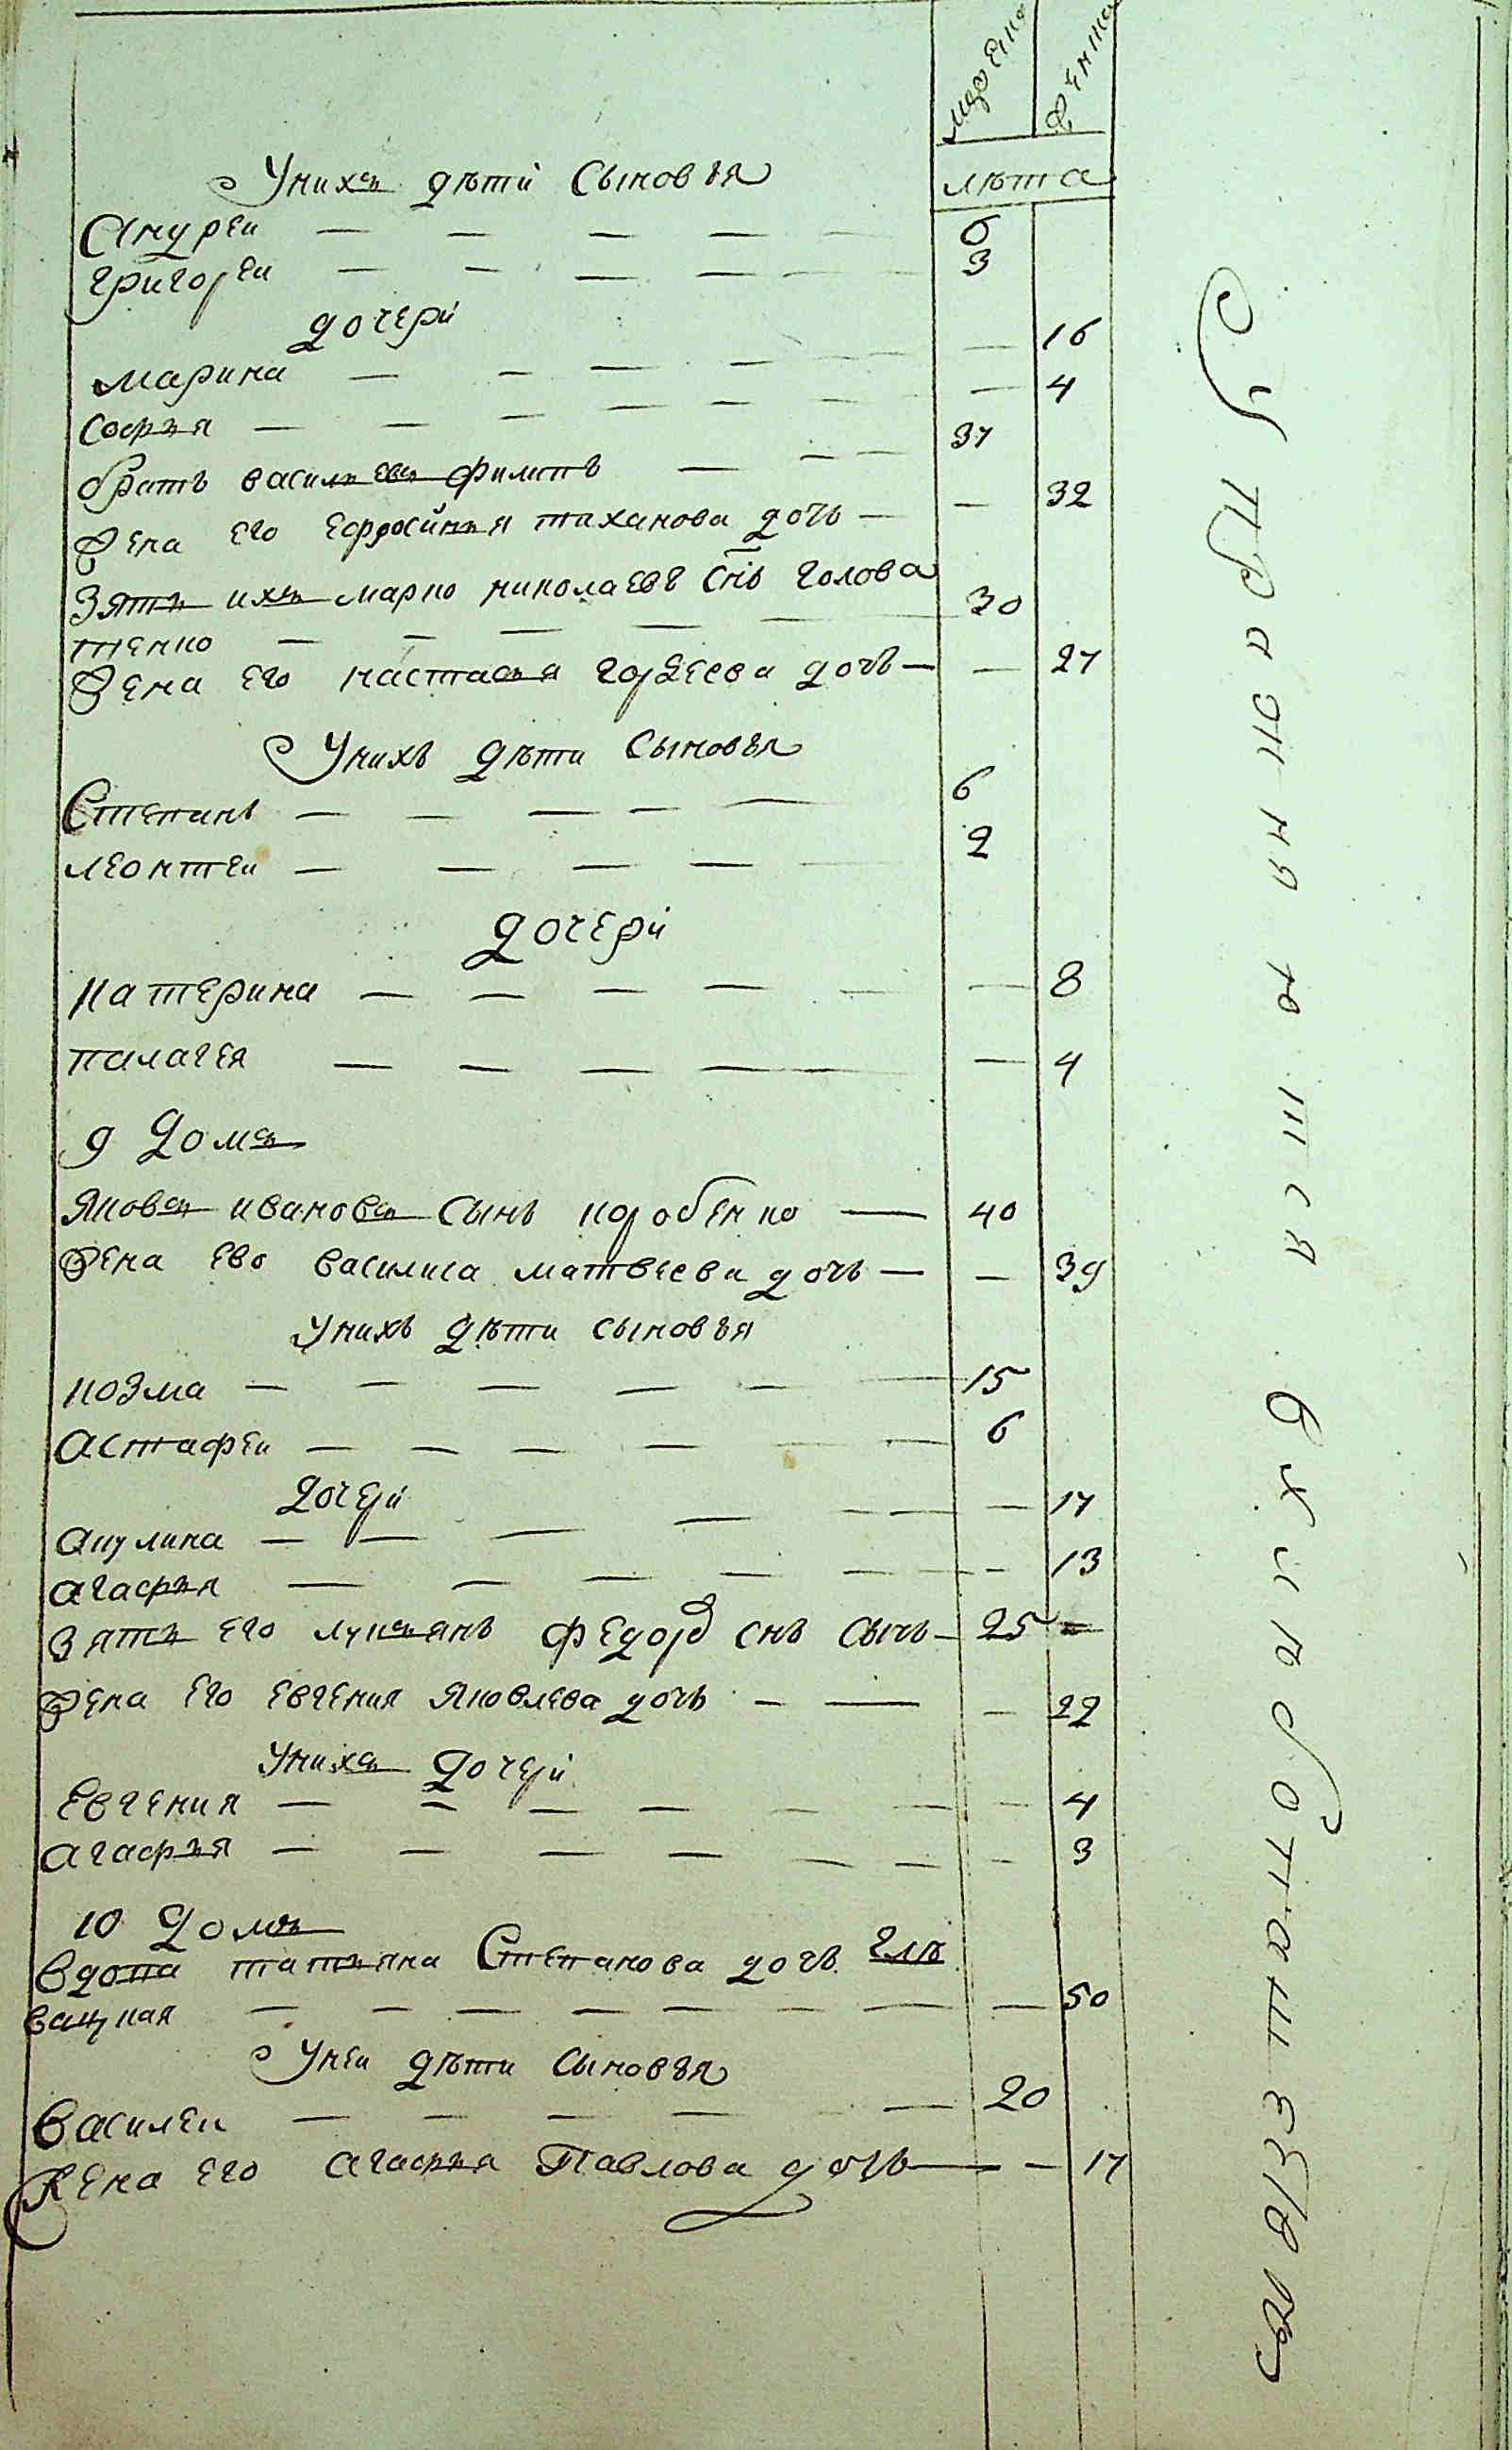 мужеска женска
лѣта
У нихъ дѣти сыновья
Андреи — — — — — 6
григореи — — — — — 3
дочери
марина — — — — — — 16
софья — — — — — — 4
братъ васильевъ филипъ — — — 37
жена его ефросинья таханова дочь — — 32
зять ихъ марко николаевъ снъ голова
тенко — — — — — 30
жена его настасья гордеева дочь — — 27
У нихъ дѣти сыновья
Степанъ — — — — — 6
леонтеи — — — — — 2
дочери
катерина — — — — — — 8
палагея — — — — — 4
9 домъ
яковъ ивановъ сынъ коробенко — 40
жена ево василиса матвеева дочь — — 39
у нихъ дѣти сыновья
козма — — — — — — 15
астафеи — — — — — — 6
дочери
акулина — — — — — — — 17
агафья — — — — — — — 13
зять его лукьянъ федор снъ сычь — 25
жена его евгения яковлева дочь — — — 22
у нихъ дочери
евгения — — — — — — — 4
агафья — — — — — — — 3
10 домъ
вдова татьяна Степанова дочь глѣ
вацкая — — — — — — — — 50
У неи дѣти сыновья
василеи — — — — — 20
жена его агафья Павлова дочь — — 17